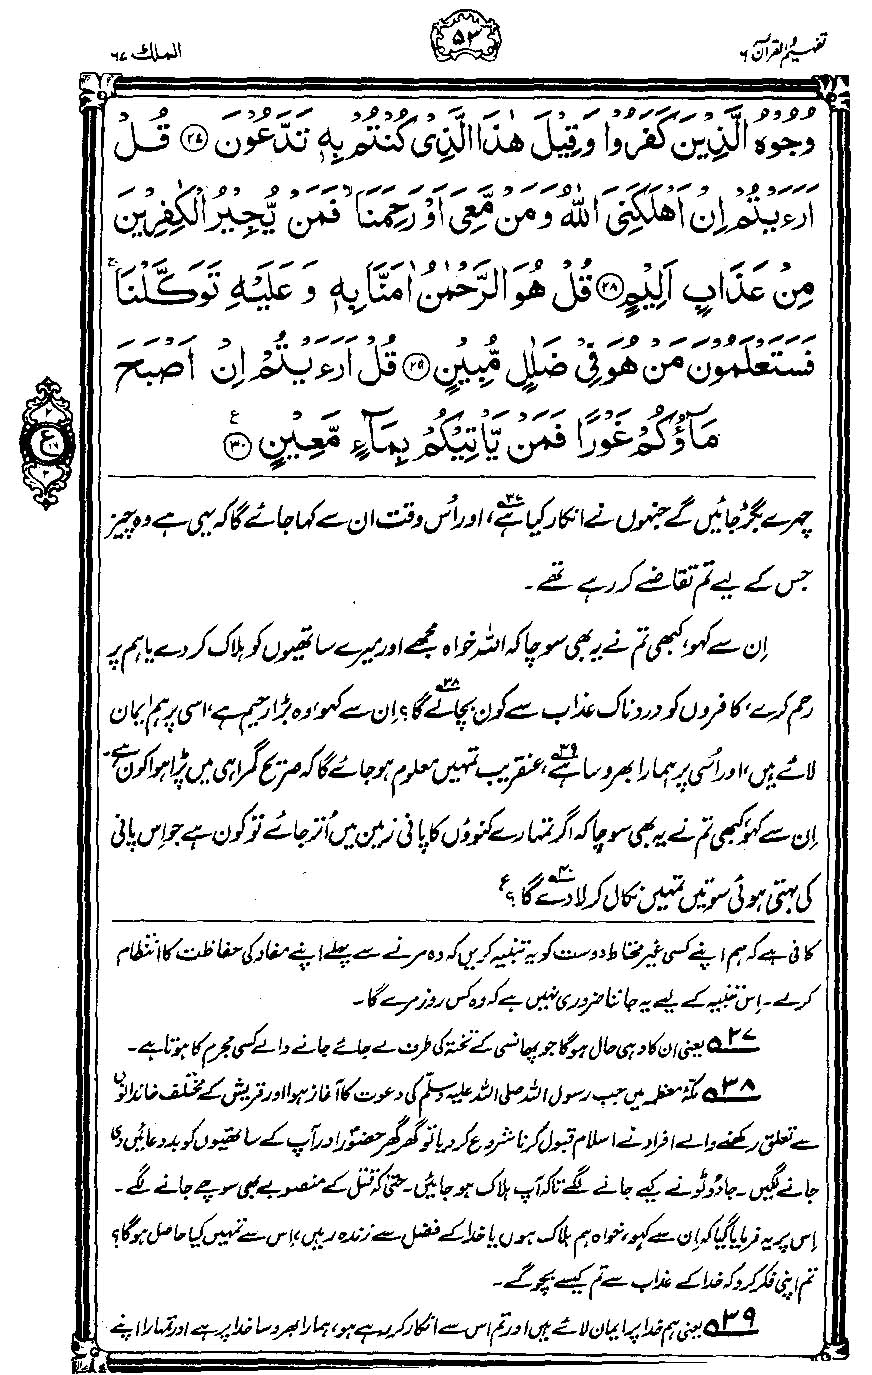 تفہیم القرآن ۶
۵۳
الملک ۶۷
وُجُوْهُ الَّذِيْنَ كَفَرُوْا وَقِيْلَ هٰذَا الَّذِيْ كُنْتُمْ بِهٖ تَدَّعُوْنَ ﴿۲۷﴾ قُلْ
اَرَءَيْتُمْ اِنْ اَهْلَكَنِيَ اللّٰهُ وَمَنْ مَّعِيَ اَوْ رَحِمَنَا ۙ فَمَنْ يُّجِيْرُ الْكٰفِرِيْنَ
مِنْ عَذَابٍ اَلِيْمٍ ﴿۲۸﴾ قُلْ هُوَ الرَّحْمٰنُ اٰمَنَّا بِهٖ وَ عَلَيْهِ تَوَكَّلْنَا ۚ
فَسَتَعْلَمُوْنَ مَنْ هُوَ فِيْ ضَلٰلٍ مُّبِيْنٍ ﴿۲۹﴾ قُلْ اَرَءَيْتُمْ اِنْ اَصْبَحَ
مَآؤُكُمْ غَوْرًا فَمَنْ يَّاْتِيْكُمْ بِمَآءٍ مَّعِيْنٍ ﴿۳۰﴾ ع
چہرے بگڑ جائیں گے جنہوں نے انکار کیا ہے۳۷، اور اُس وقت ان سے کہا جائے گا کہ یہی ہے وہ چیز
جس کے لیے تم تقاضے کر رہے تھے۔
اِن سے کہو، کبھی تم نے یہ بھی سوچا کہ اللہ خواہ مجھے اور میرے ساتھیوں کو ہلاک کر دے یا ہم پر
رحم کرے، کافروں کو دردناک عذاب سے کون بچالے گا؟۳۸ اِن سے کہو، وہ بڑا رحیم ہے، اسی پر ہم ایمان
لائے ہیں، اور اُسی پر ہمارا بھروسا ہے۳۹، عنقریب تمہیں معلوم ہو جائے گا کہ صریح گمراہی میں پڑا ہوا کون ہے۔
اِن سے کہو، کبھی تم نے یہ بھی سوچا کہ اگر تمہارے کنوؤں کا پانی زمین میں اُتر جائے تو کون ہے جو اِس پانی
کی بہتی ہوئی سوتیں تمہیں نکال کر لا دے گا۴۰؟ ع
کافی ہے کہ ہم اپنے کسی غیر محتاط دوست کو یہ تنبیہ کریں کہ وہ مرنے سے پہلے اپنے مفاد کی حفاظت کا انتظام
کر لے۔ اِس تنبیہ کے لیے یہ جاننا ضروری نہیں ہے کہ وہ کس روز مرے گا۔
۳۷ یعنی ان کا وہی حال ہوگا جو پھانسی کے تختہ کی طرف لے جائے جانے والے کسی مجرم کا ہوتا ہے۔
۳۸ مکۂ معظمہ میں جب رسول اللہ صلی اللہ علیہ وسلم کی دعوت کا آغاز ہوا اور قریش کے مختلف خاندانوں
سے تعلق رکھنے والے افراد نے اسلام قبول کرنا شروع کر دیا تو گھر گھر حضورؐ اور آپ کے ساتھیوں کو بددعائیں دی
جانے لگیں۔ جادو ٹونے کیے جانے لگے تاکہ آپ ہلاک ہو جائیں۔ حتّٰی کہ قتل کے منصوبے بھی سوچے جانے لگے۔
اِس پر یہ فرمایا گیا کہ اِن سے کہو، خواہ ہم ہلاک ہوں یا خدا کے فضل سے زندہ رہیں، اِس سے تمہیں کیا حاصل ہوگا؟
تم اپنی فکر کرو کہ خدا کے عذاب سے تم کیسے بچو گے۔
۳۹ یعنی ہم خدا پر ایمان لائے ہیں اور تم اس سے انکار کر رہے ہو، ہمارا بھروسا خدا پر ہے اور تمہارا اپنے